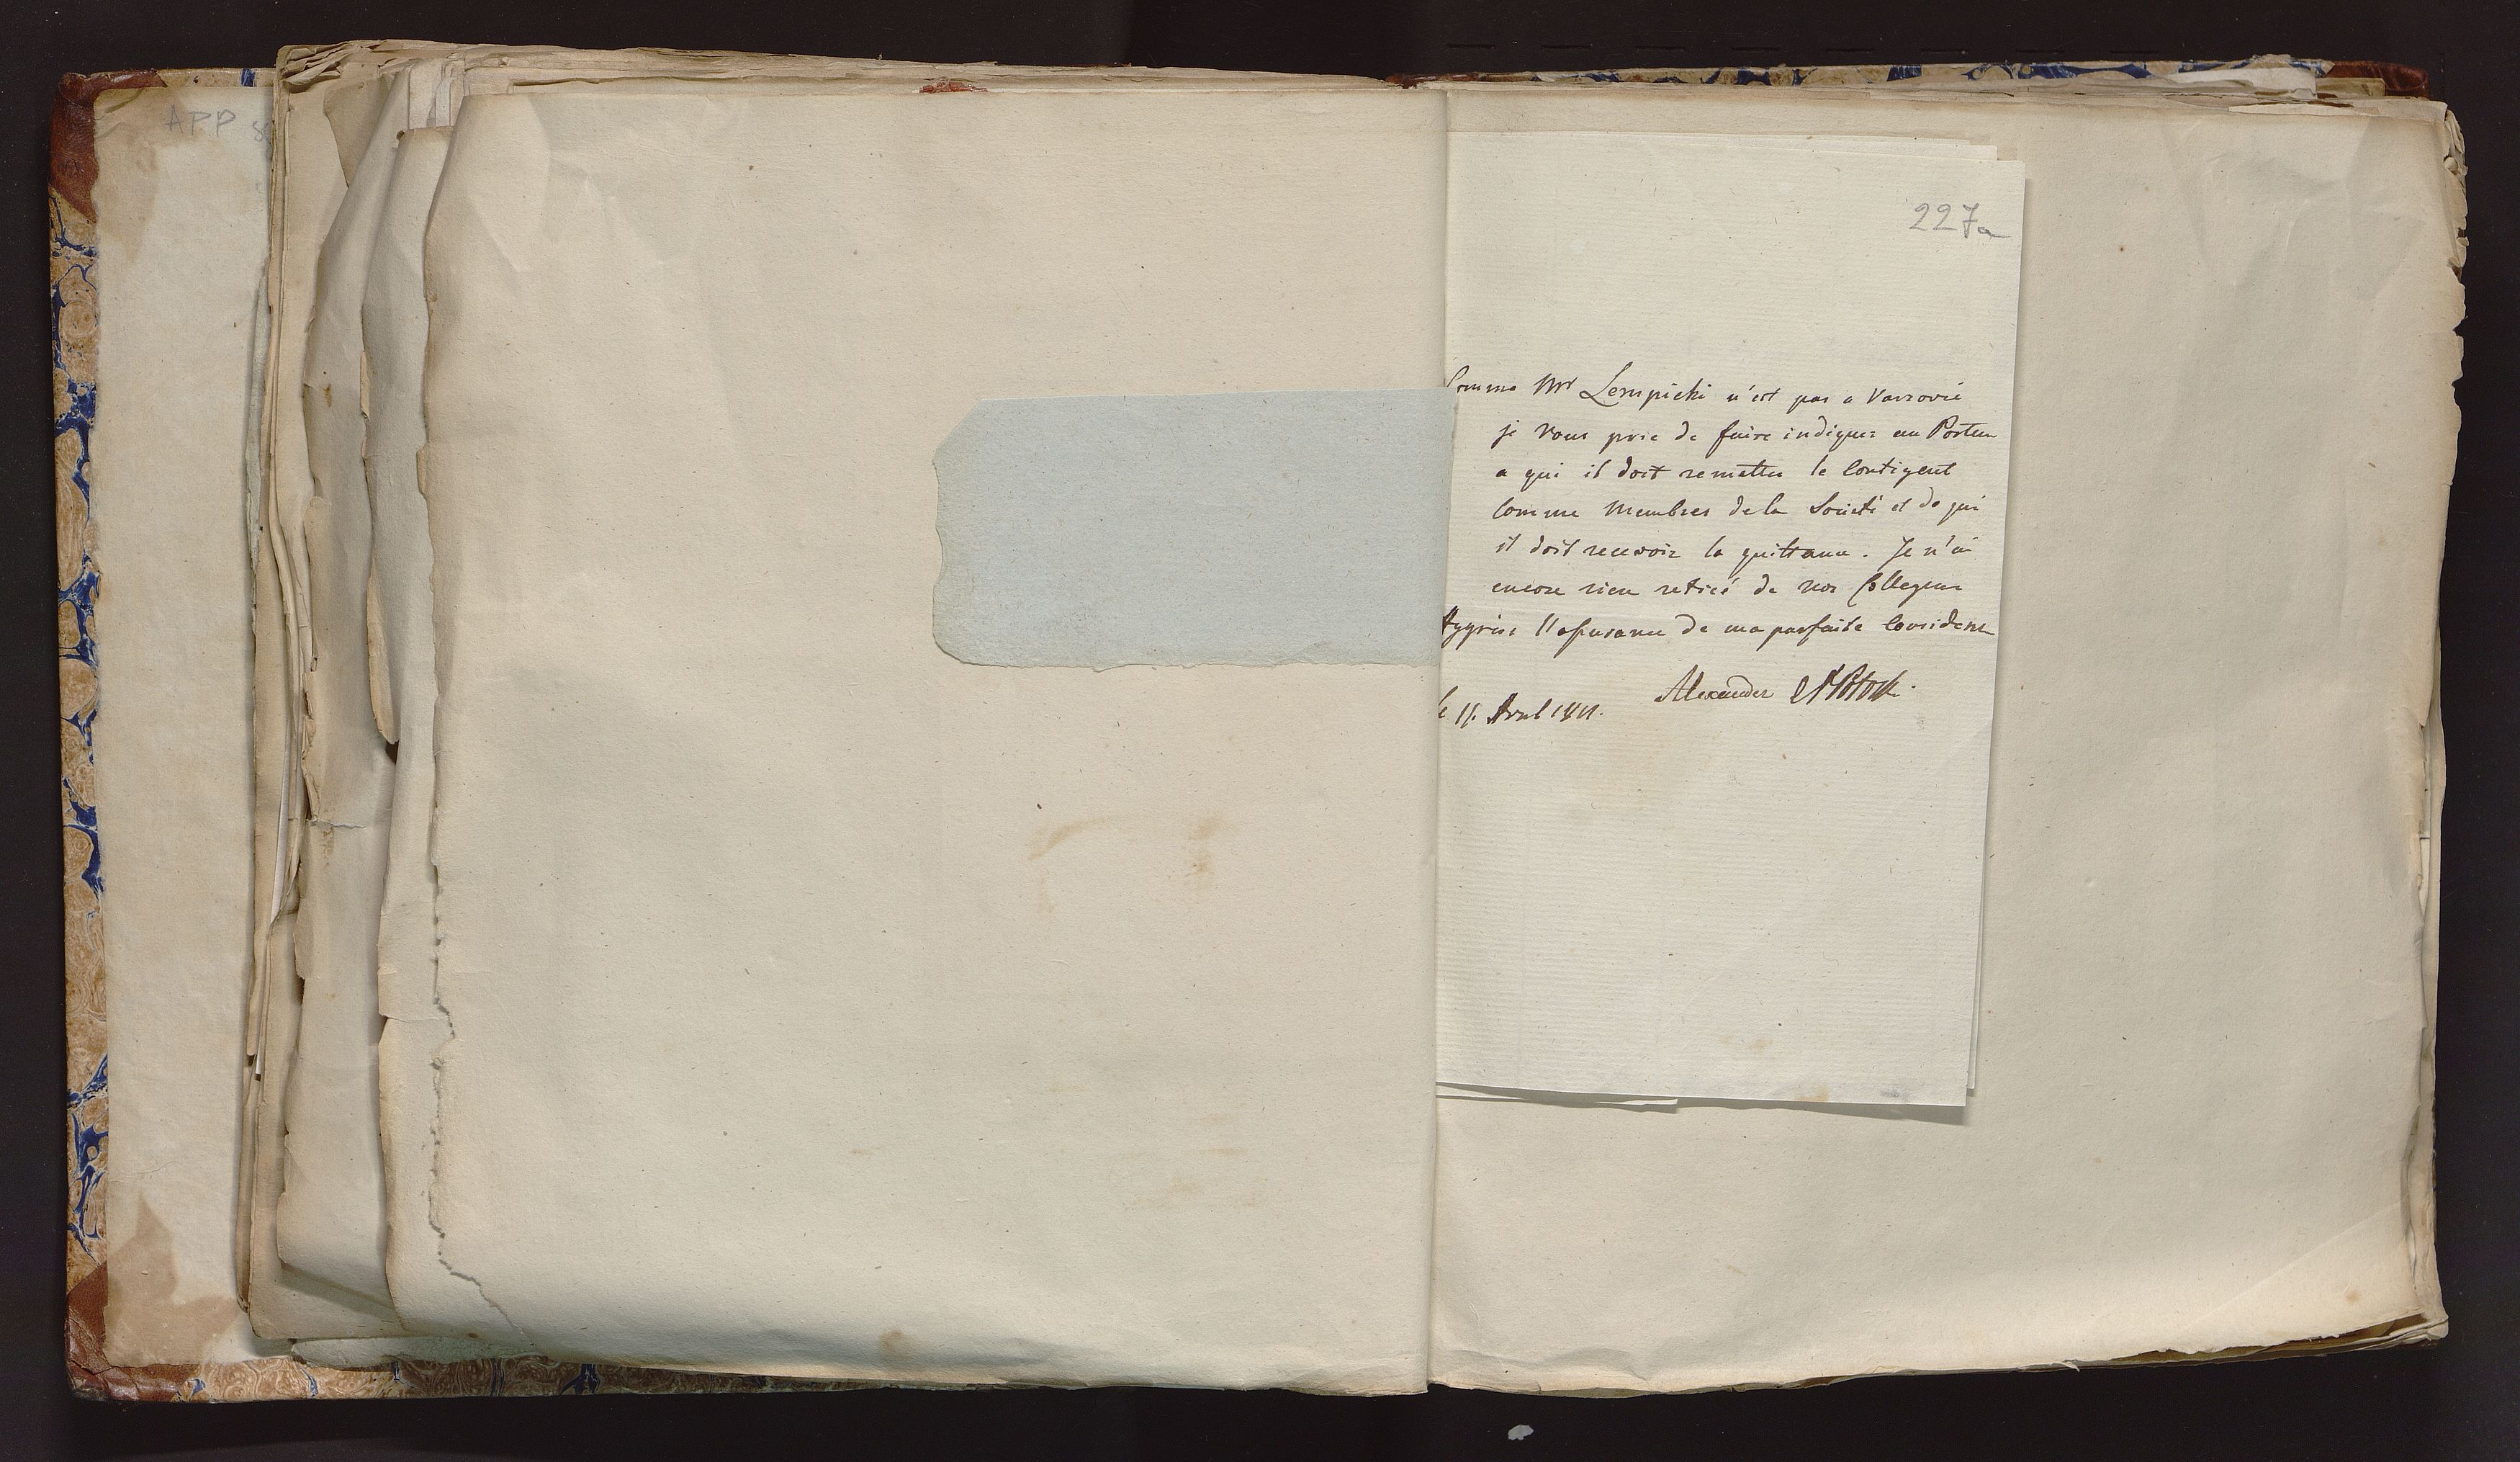 APP 8
227a
Comme Mr Lempicki n'est pas a Varsovie
je vous prie de faire indiquer au Porteur
a qui il doit remettre le Contigent
comme Membres de la Societé et de qui
il doit recevoir la quittance. Je n'ai
encore rien retiré de nos Collegues
Agyrées l'assurance de ma parfaite Consideration
le 11. Avril 1811.
Alexander Potocki